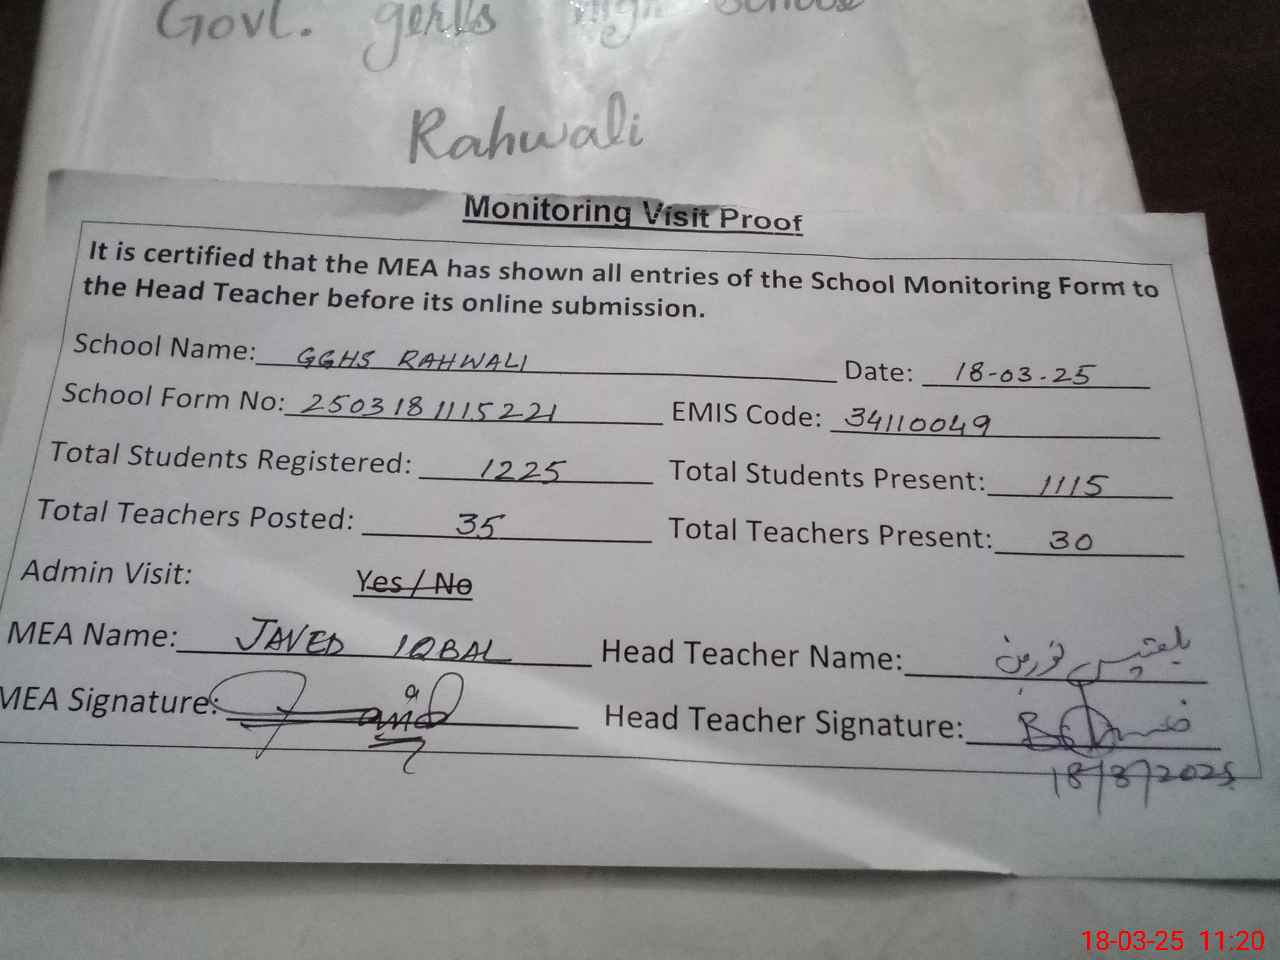 Govt. gerls High School
Rahwali
Monitoring Visit Proof
It is certified that the MEA has shown all entries of the School Monitoring Form to
the Head Teacher before its online submission.
School Name: GGHS RAHWALI Date: 18-03-25
School Form No: 250318 1115221 EMIS Code: 34110049
Total Students Registered: 1225 Total Students Present: 1115
Total Teachers Posted: 35 Total Teachers Present: 30
Admin Visit: Yes / No
MEA Name: JAVED IQBAL Head Teacher Name:
MEA Signature: Head Teacher Signature:
18/3/2025
18-03-25 11:20